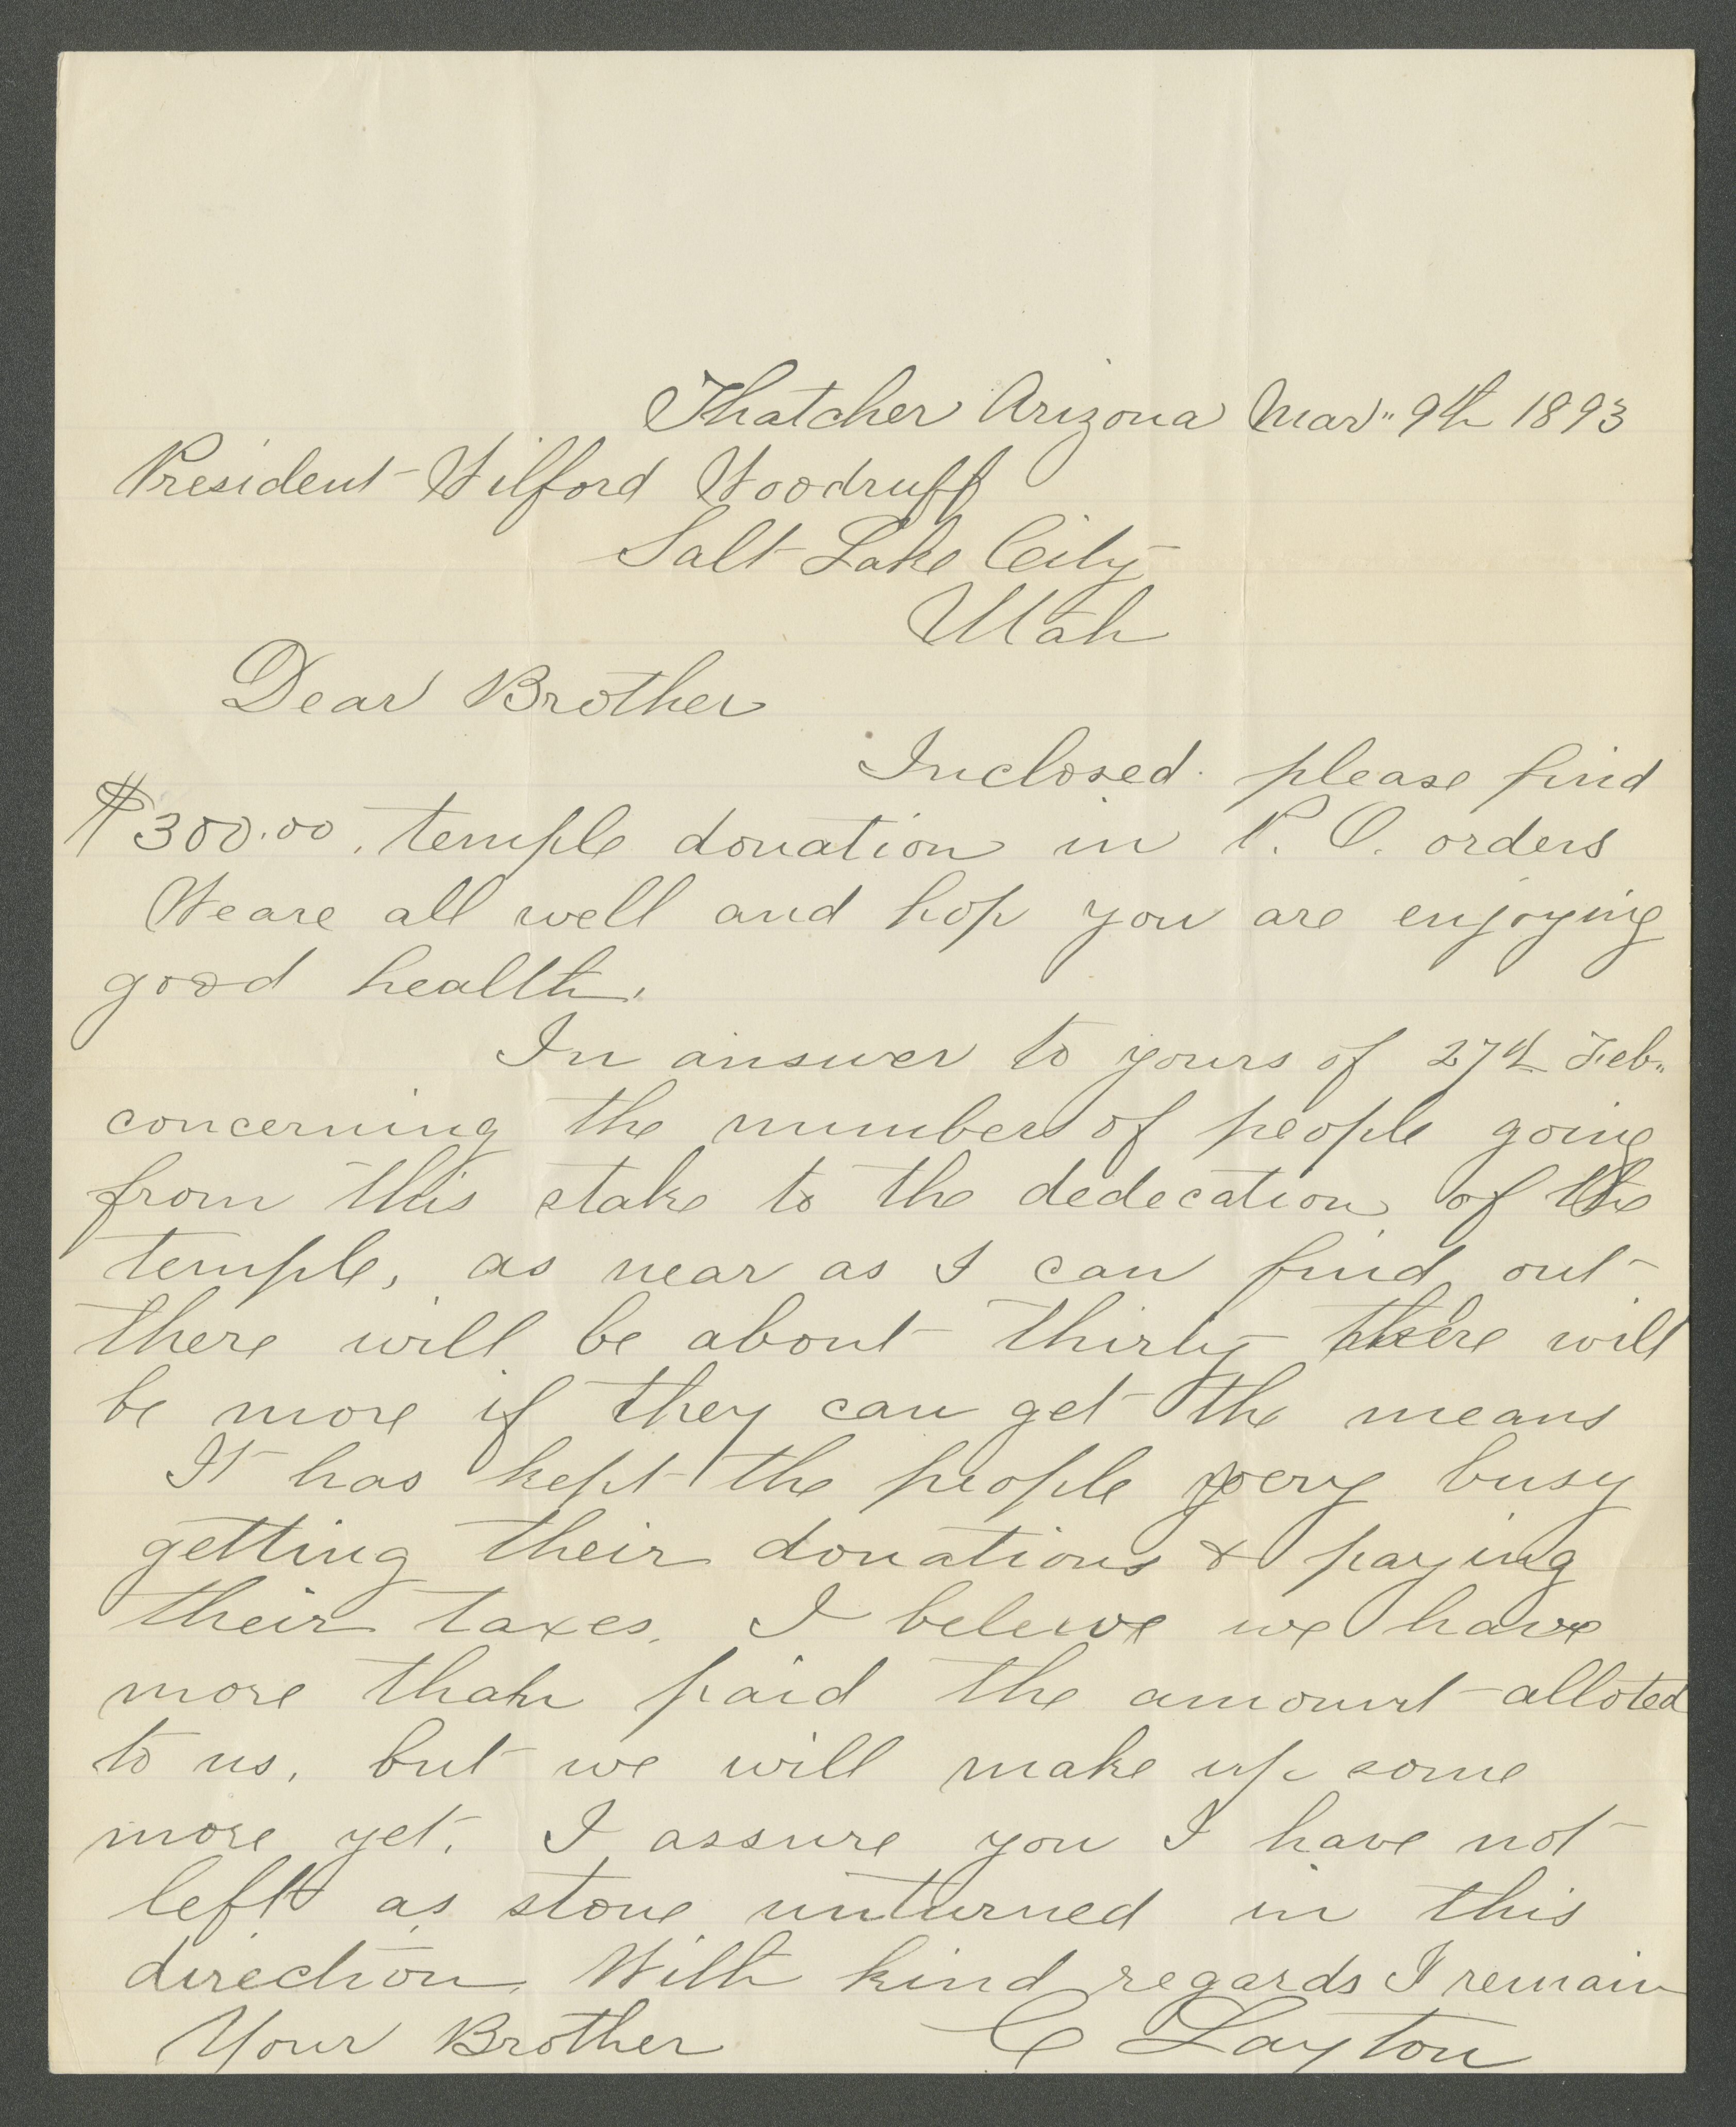 Thatcher Arizona Mar" 9th 1893
President Wilford Woodruff
Salt Lake City
Utah
Dear Brother
Inclosed please find
$300.00. temple donation in P. O. orders
We are all well and hop you are enjoying
good health.
In answer to yours of 27th Feb"
concerning the number of people going
from this stake to the dedecation of the
temple, as near as I can find out
there will be about thirty there will
be more if they can get the means
It has kept the people very busy
getting their donations & paying
their taxes. I beleive we have
more than paid the amount alloted
to us, but we will make up some
more yet. I assure you I have not
left as stone unturned in this
direction. With kind regards I remain
Your Brother C Layton